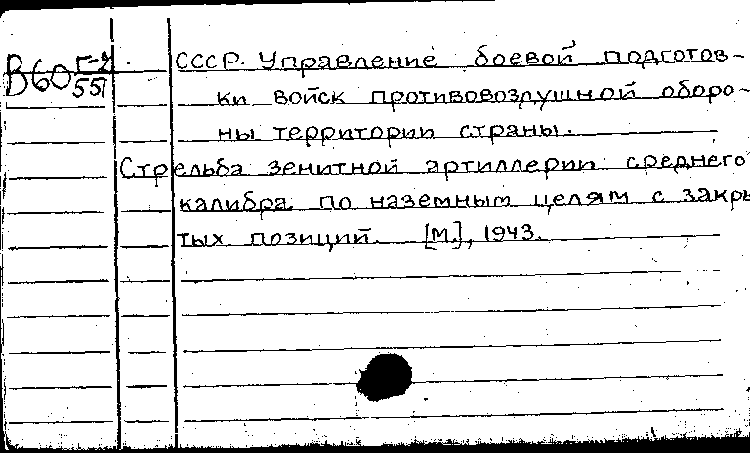 В60 Г-2/551
СССР. Управление боевой подготов-
ки войск противовоздушной оборо-
ны территории страны.
Стрельба зенитной артиллерии среднего
калибра по наземным целям с закры
тых позиций. [М.], 1943.